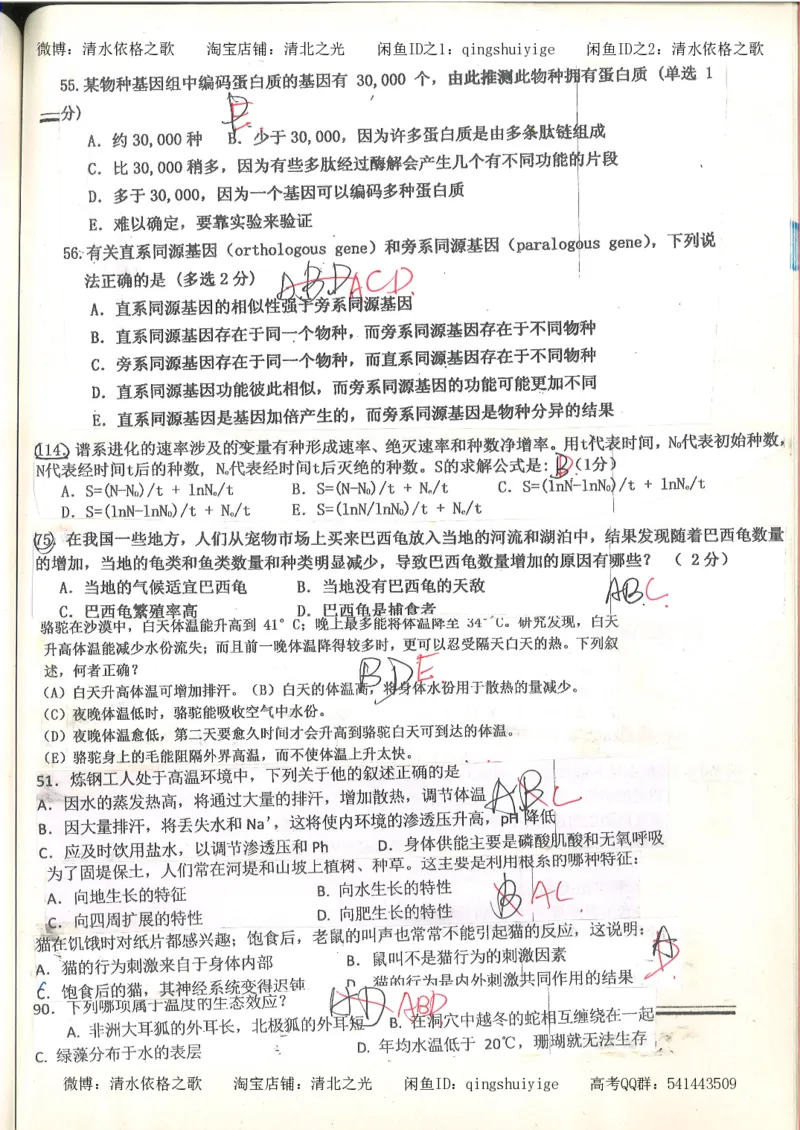 微博：清水依格之歌 淘宝店铺：清北之光 闲鱼ID之1：qingshuiyige 闲鱼ID之2：清水依格之歌
55.某物种基因组中编码蛋白质的基因有 30,000 个，由此推测此物种拥有蛋白质 (单选 1
分)
E.
A. 约 30,000 种 B. 少于 30,000，因为许多蛋白质是由多条肽链组成
C. 比 30,000 稍多，因为有些多肽经过酶解会产生几个有不同功能的片段
D. 多于 30,000，因为一个基因可以编码多种蛋白质
E. 难以确定，要靠实验来验证
56.有关直系同源基因（orthologous gene）和旁系同源基因（paralogous gene），下列说
法正确的是 (多选 2 分) ABD ACD.
A. 直系同源基因的相似性强于旁系同源基因
B. 直系同源基因存在于同一个物种，而旁系同源基因存在于不同物种
C. 旁系同源基因存在于同一个物种，而直系同源基因存在于不同物种
D. 直系同源基因功能彼此相似，而旁系同源基因的功能可能更加不同
E. 直系同源基因是基因加倍产生的，而旁系同源基因是物种分异的结果
114、谱系进化的速率涉及的变量有种形成速率、绝灭速率和种数净增率。用t代表时间，N₀代表初始种数，
N代表经时间t后的种数，Nₑ代表经时间t后灭绝的种数。S的求解公式是：B（1分）
A. S=(N-N₀)/t + lnNₑ/t B. S=(N-N₀)/t + Nₑ/t C. S=(lnN-lnN₀)/t + lnNₑ/t
D. S=(lnN-lnN₀)/t + Nₑ/t E. S=(lnN/lnN₀)/t + Nₑ/t
75、在我国一些地方，人们从宠物市场上买来巴西龟放入当地的河流和湖泊中，结果发现随着巴西龟数量
的增加，当地的龟类和鱼类数量和种类明显减少，导致巴西龟数量增加的原因有哪些？（ 2 分）
A. 当地的气候适宜巴西龟 B. 当地没有巴西龟的天敌 ABC.
C. 巴西龟繁殖率高 D. 巴西龟是捕食者
骆驼在沙漠中，白天体温能升高到 41°C；晚上最多能将体温降至 34°C。研究发现，白天
升高体温能减少水份流失；而且前一晚体温降得较多时，更可以忍受隔天白天的热。下列叙
述，何者正确？ BDE
(A）白天升高体温可增加排汗。（B）白天的体温高，将身体水份用于散热的量减少。
(C）夜晚体温低时，骆驼能吸收空气中水份。
(D）夜晚体温愈低，第二天要愈久时间才会升高到骆驼白天可到达的体温。
(E）骆驼身上的毛能阻隔外界高温，而不使体温上升太快。
51. 炼钢工人处于高温环境中，下列关于他的叙述正确的是
A. 因水的蒸发热高，将通过大量的排汗，增加散热，调节体温 AB C
B. 因大量排汗，将丢失水和 Na⁺，这将使内环境的渗透压升高，pH 降低
C. 应及时饮用盐水，以调节渗透压和 Ph D. 身体供能主要是磷酸肌酸和无氧呼吸
为了固堤保土，人们常在河堤和山坡上植树、种草。这主要是利用根系的哪种特征：
A. 向地生长的特征 B. 向水生长的特性 B AC
C. 向四周扩展的特性 D. 向肥生长的特性
猫在饥饿时对纸片都感兴趣；饱食后，老鼠的叫声也常常不能引起猫的反应，这说明： A
A. 猫的行为刺激来自于身体内部 B. 鼠叫不是猫行为的刺激因素 D.
C. 饱食后的猫，其神经系统变得迟钝 猫的行为是内外刺激共同作用的结果
90. 下列哪项属于温度的生态效应？ AD ABD
A. 非洲大耳狐的外耳长，北极狐的外耳短 B. 在洞穴中越冬的蛇相互缠绕在一起
C. 绿藻分布于水的表层 D. 年均水温低于 20℃，珊瑚就无法生存
微博：清水依格之歌 淘宝店铺：清北之光 闲鱼ID：qingshuiyige 高考QQ群：541443509